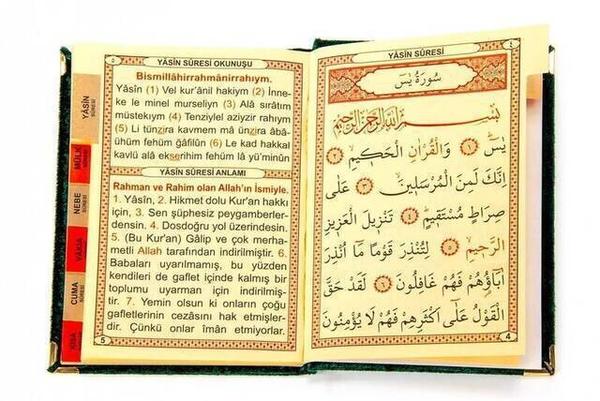 YÂSÎN SÛRESİ
٤
سُورَةُ يٰسٓ
بِسْمِ اللّٰهِ الرَّحْمٰنِ الرَّحِيمِ
يٰسٓ ﴿١﴾ وَالْقُرْاٰنِ الْحَكِيمِ ﴿٢﴾
اِنَّكَ لَمِنَ الْمُرْسَلِينَ ﴿٣﴾ عَلٰى
صِرَاطٍ مُسْتَقِيمٍ ﴿٤﴾ تَنْزِيلَ الْعَزِيزِ
الرَّحِيمِ ﴿٥﴾ لِتُنْذِرَ قَوْمًا مَٓا اُنْذِرَ
اٰبَٓاؤُهُمْ فَهُمْ غَافِلُونَ ﴿٦﴾ لَقَدْ حَقَّ
الْقَوْلُ عَلٰٓى اَكْثَرِهِمْ فَهُمْ لَا يُؤْمِنُونَ
4
٥
YÂSÎN SÛRESİ OKUNUŞU
Bismillâhirrahmânirrahıym.
Yâsîn (1) Vel kur'ânil hakiym (2) İnne-
ke le minel murseliyn (3) Alâ sıratım
müstekıym (4) Tenziylel aziyzir rahıym
(5) Li tünzira kavmem mâ ünzira âbâ-
ühüm fehüm ğâfilûn (6) Le kad hakkal
kavlü alâ ekserihim fehüm lâ yü'minûn
YÂSÎN SÛRESİ ANLAMI
Rahman ve Rahim olan Allah'ın İsmiyle.
1. Yâsîn, 2. Hikmet dolu Kur'an hakkı
için, 3. Sen şüphesiz peygamberler-
densin. 4. Dosdoğru yol üzerindesin.
5. (Bu Kur'an) Gâlip ve çok merha-
metli Allah tarafından indirilmiştir. 6.
Babaları uyarılmamış, bu yüzden
kendileri de gaflet içinde kalmış bir
toplumu uyarman için indirilmiş-
tir. 7. Yemin olsun ki onların çoğu
gafletlerinin cezasını hak etmişler-
dir. Çünkü onlar îmân etmiyorlar.
5
YÂSÎN
SÛRESİ
MÜLK
SÛRESİ
NEBE
SÛRESİ
VÂKIA
SÛRESİ
CUMA
SÛRESİ
KISA